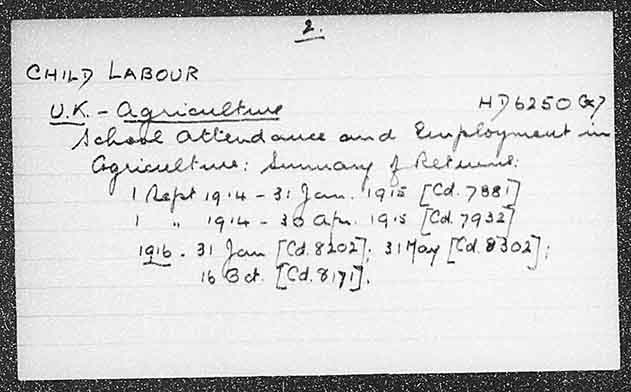 2.
CHILD LABOUR
U.K. - Agriculture HD6250(x)
School Attendance and Employment in
Agriculture: Summary of Returns:
1 Sept 1914 - 31 Jan. 1915 [Cd. 7881]
1 " 1914 - 30 Apr. 1915 [Cd. 7932]
1916. 31 Jan [Cd. 8202]; 31 May [Cd. 8302];
16 Oct. [Cd. 8171].